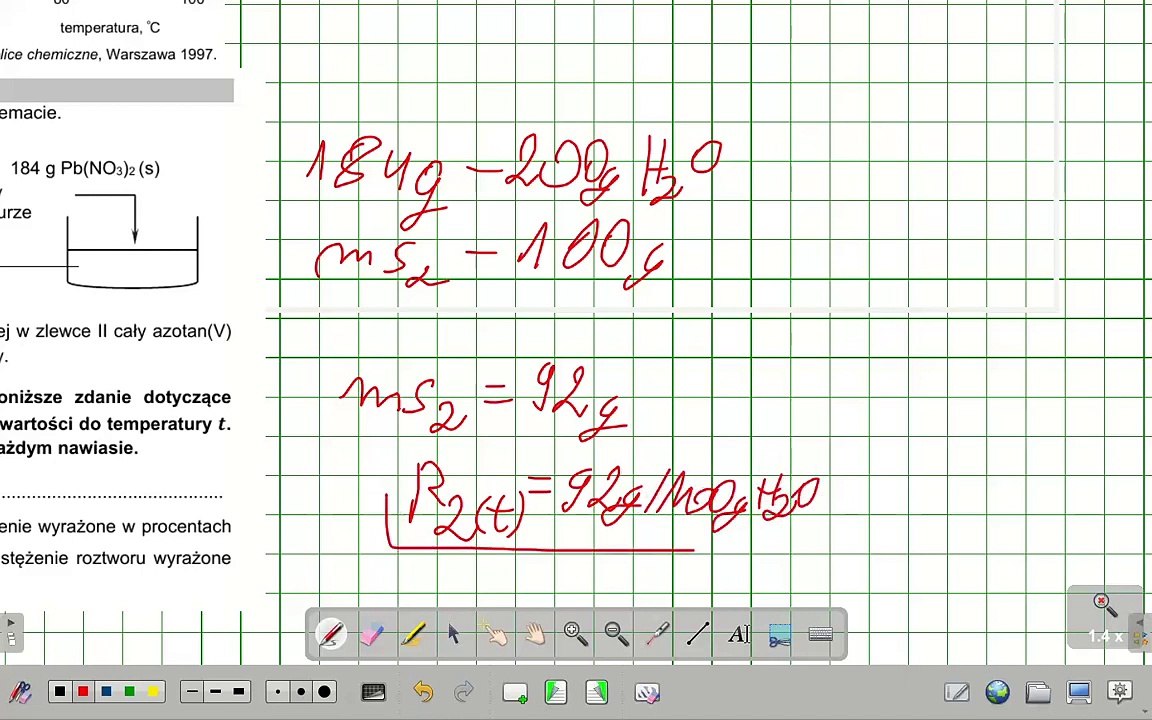 temperatura, °C
lice chemiczne, Warszawa 1997.
emacie.
184 g Pb(NO3)2 (s)
urze
ej w zlewce II cały azotan(V)
y.
oniższe zdanie dotyczące
wartości do temperatury t.
ażdym nawiasie.
enie wyrażone w procentach
stężenie roztworu wyrażone
184g - 200g H2O
ms2 - 100g
ms2 = 92g
R2(t) = 92g/100g H2O
1.4 x